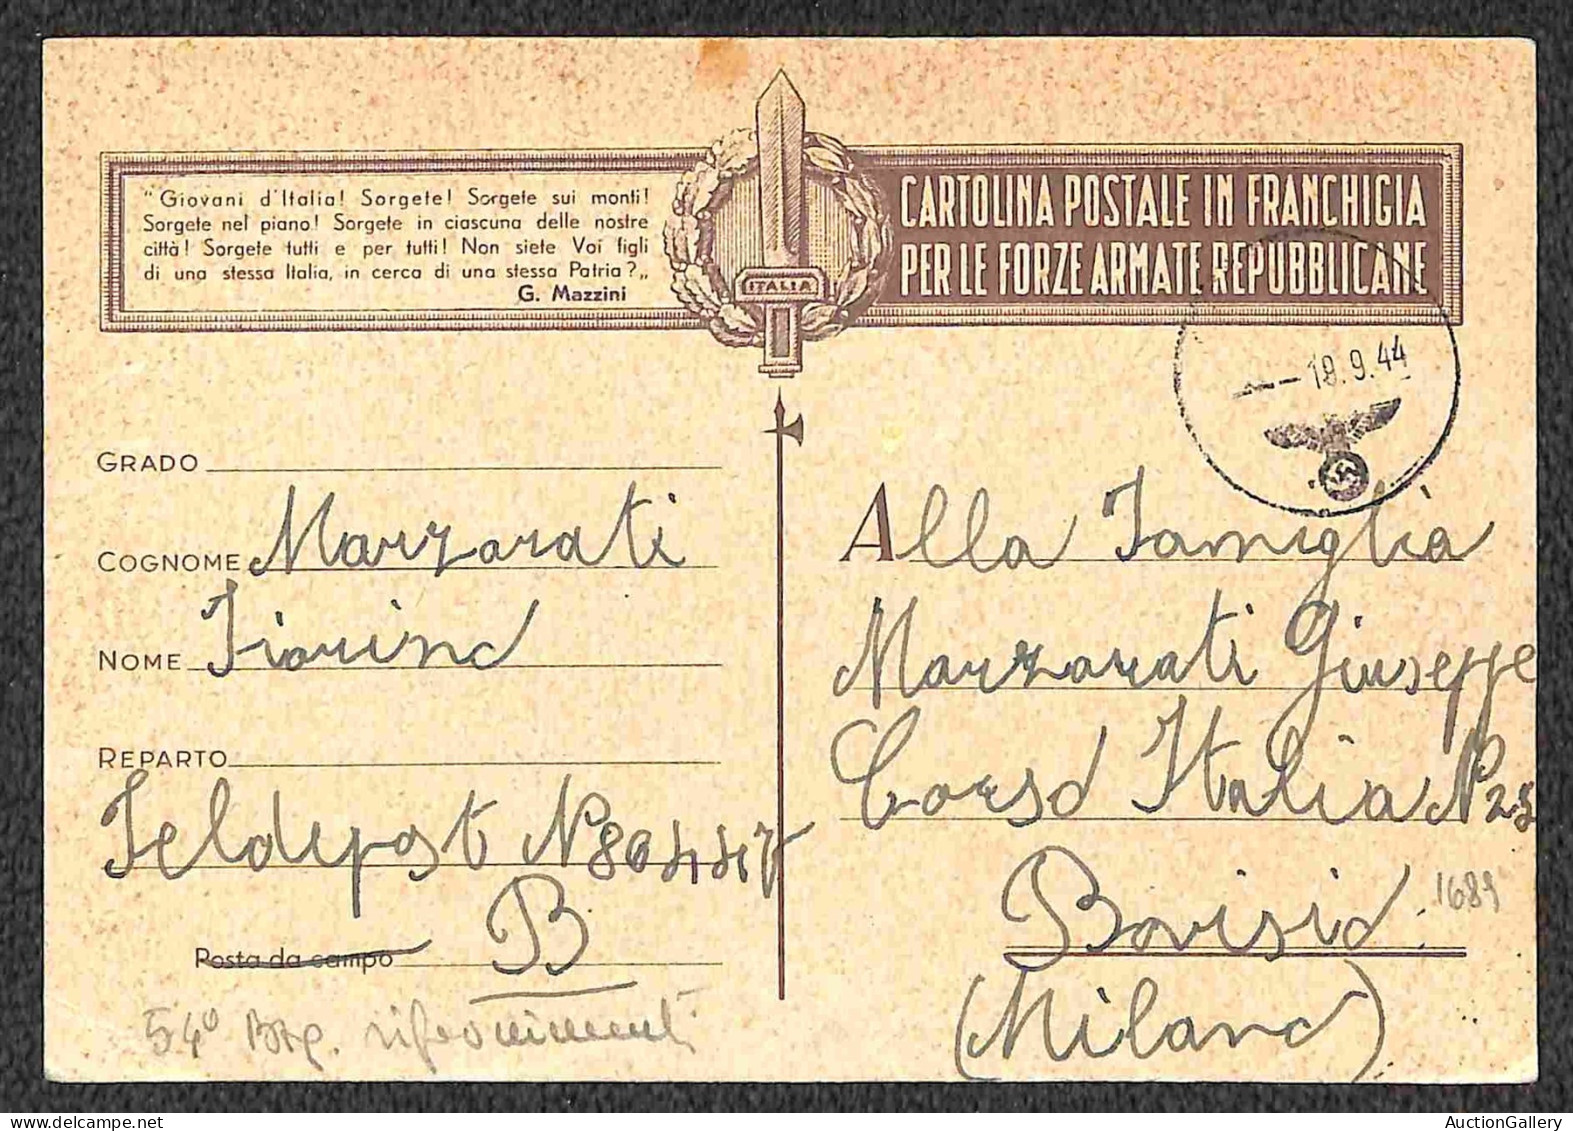 "Giovani d'Italia! Sorgete! Sorgete sui monti!
Sorgete nel piano! Sorgete in ciascuna delle nostre
città! Sorgete tutti e per tutti! Non siete Voi figli
di una stessa Italia, in cerca di una stessa Patria?„
G. Mazzini
ITALIA
CARTOLINA POSTALE IN FRANCHIGIA
PER LE FORZE ARMATE REPUBBLICANE
18.9.44
GRADO
COGNOME Marzorati
NOME Fiorino
REPARTO
Feldepost N 86447
B
Posta da campo
54° Btg. rifornimenti
Alla Famiglia
Marzorati Giuseppe
Corso Italia N 25
Bovisio
1689
(Milano)
AuctionGallery